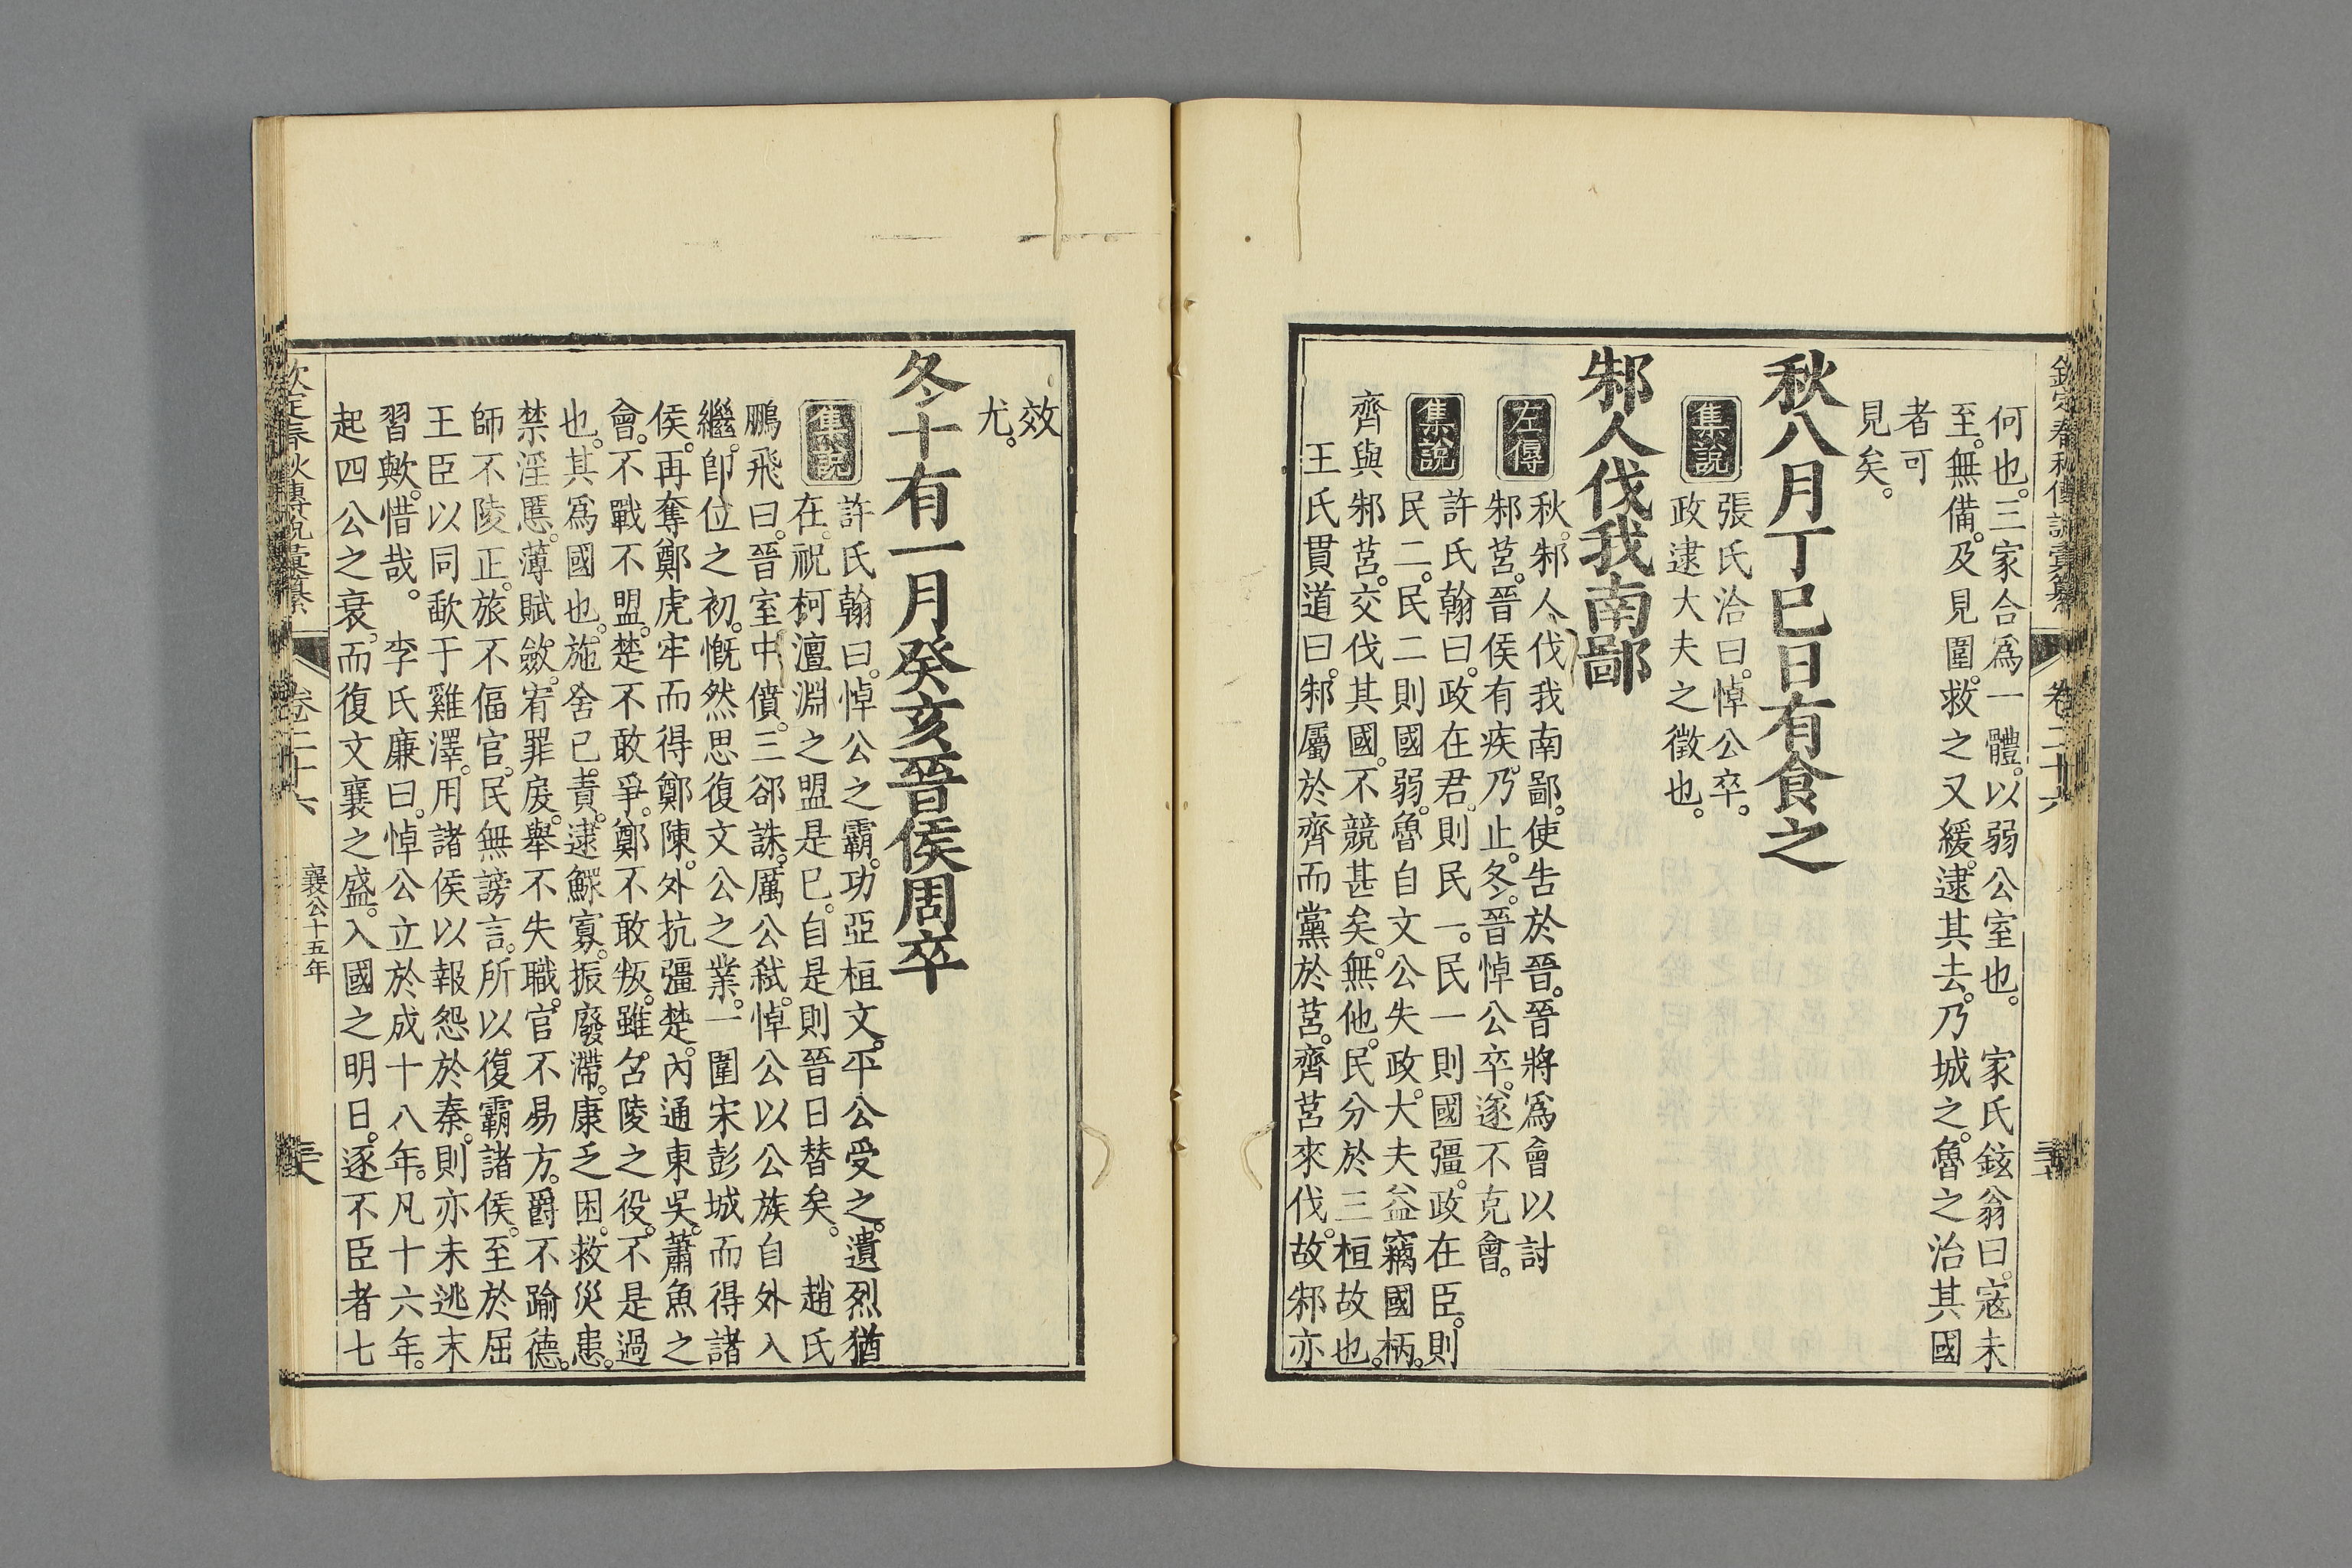 欽定春秋傳說彙纂 卷二十六
何也。三家合爲一體。以弱公室也。 家氏鉉翁曰。寇未
至。無備。及見圍。救之又緩。逮其去。乃城之。魯之治其國
者可
見矣。
秋八月丁巳日有食之
集說
張氏洽曰。悼公卒。
政逮大夫之徵也。
邾人伐我南鄙
左傳
秋。邾人伐我南鄙。使告於晉。晉將爲會以討
邾莒。晉侯有疾。乃止。冬。晉悼公卒。遂不克會。
集說
許氏翰曰。政在君。則民一。民一則國彊。政在臣。則
民二。民二則國弱。魯自文公失政。大夫益竊國柄。
齊與邾莒。交伐其國。不競甚矣。無他。民分於三桓故也。
王氏貫道曰。邾屬於齊而黨於莒。齊莒來伐。故邾亦
效
尤。
冬十有一月癸亥晉侯周卒
集說
許氏翰曰。悼公之霸。功亞桓文。平公受之。遺烈猶
在。祝柯澶淵之盟是已。自是則晉日替矣。 趙氏
鵬飛曰。晉室中僨。三郤誅。厲公弑。悼公以公族自外入
繼。卽位之初。慨然思復文公之業。一圍宋彭城而得諸
侯。再奪鄭虎牢而得鄭陳。外抗彊楚。內通東吳。蕭魚之
會。不戰不盟。楚不敢爭。鄭不敢叛。雖召陵之役。不是過
也。其爲國也。施舍已責。逮鰥寡。振廢滯。康乏困。救災患。
禁淫慝。薄賦斂。宥罪戾。舉不失職。官不易方。爵不踰德。
師不陵正。旅不偪官。民無謗言。所以復霸諸侯。至於屈
王臣以同歃于雞澤。用諸侯以報怨於秦。則亦未逃末
習歟。惜哉。 李氏廉曰。悼公立於成十八年。凡十六年。
起四公之衰。而復文襄之盛。入國之明日。逐不臣者七
欽定春秋傳說彙纂 卷二十六 襄公十五年